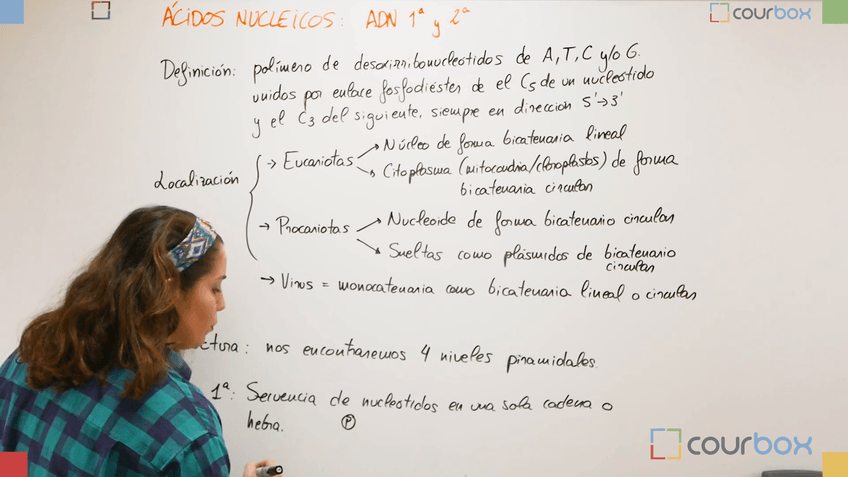 courbox
ÁCIDOS NUCLEICOS: ADN 1ª y 2ª
Definición: polímero de desoxirribonucleótidos de A, T, C y/o G.
unidos por enlace fosfodiéster de el C5 de un nucleótido
y el C3 del siguiente, siempre en dirección 5'→3'
→ Núcleo de forma bicatenaria lineal
→ Eucariotas
→ Citoplasma (mitocondria/cloroplastos) de forma
bicatenaria circular
Localización
→ Nucleoide de forma bicatenario circular
→ Procariotas
→ Sueltas como plásmidos de bicatenario
circular
→ Virus = monocatenaria como bicatenaria lineal o circular
ctura: nos encontraremos 4 niveles piramidales.
1ª: Secuencia de nucleótidos en una sola cadena o
hebra. P
courbox